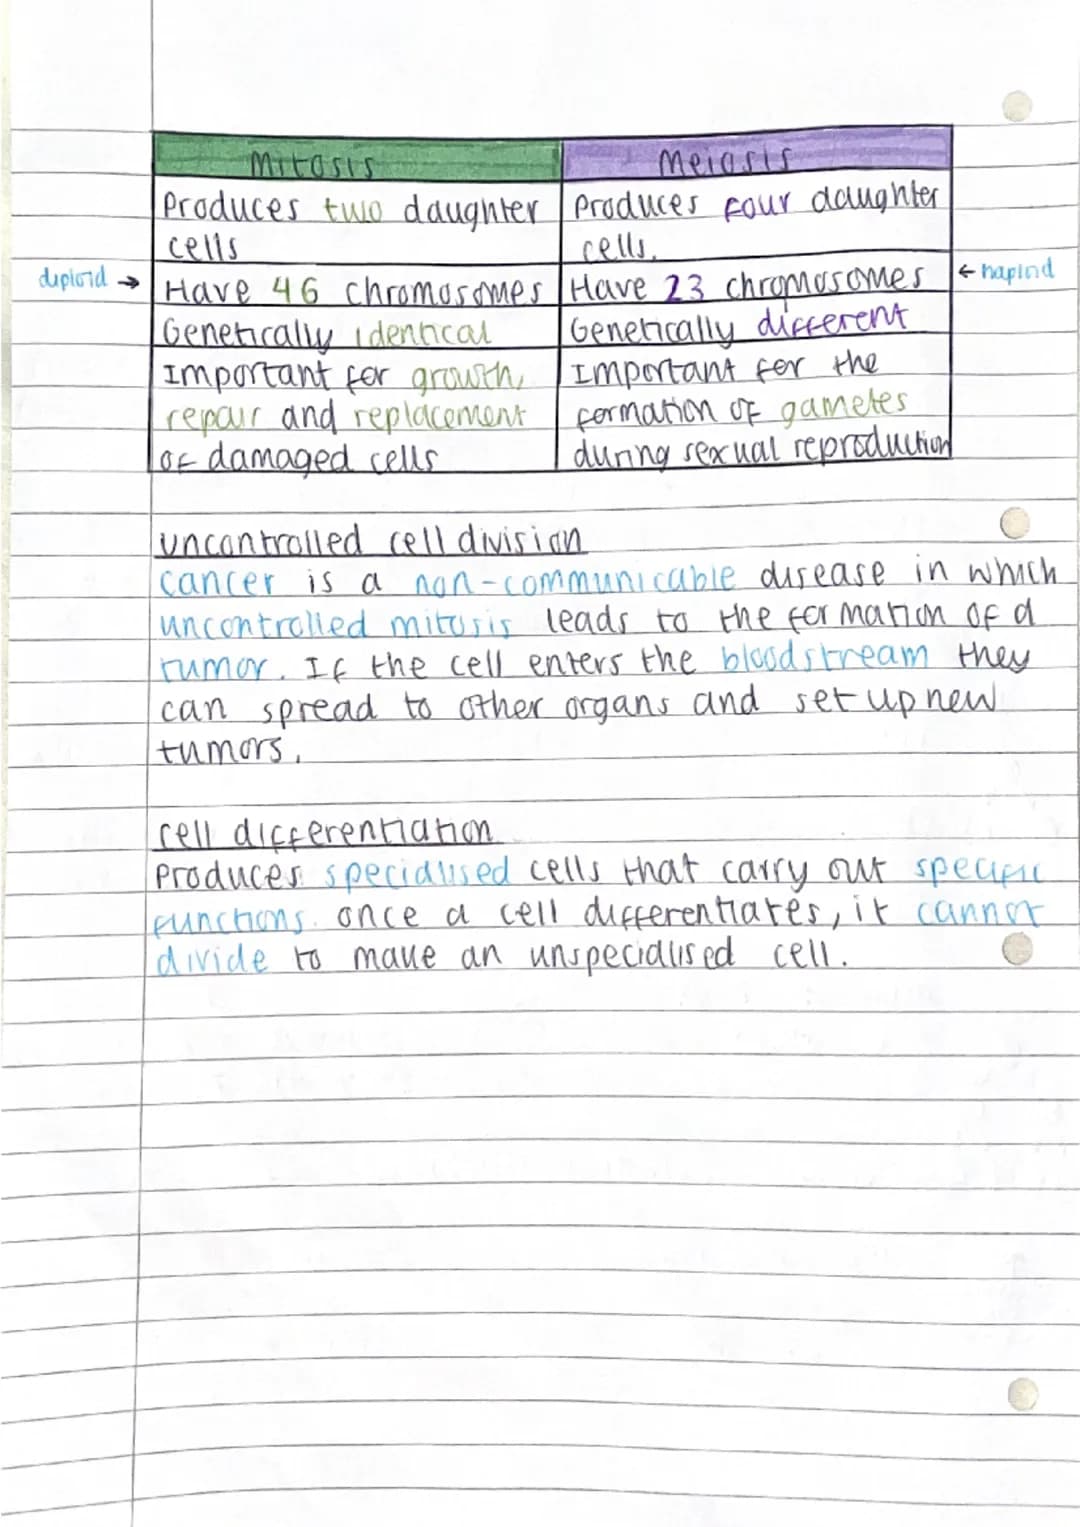 Mitosis Meiosis
Produces two daughter Produces four daughter
cells cells.
diploid → Have 46 chromosomes Have 23 chromosomes ← haploid
Genetically identical Genetically different
Important for growth, Important for the
repair and replacement formation of gametes
of damaged cells during sexual reproduction
uncontrolled cell division
cancer is a non-communicable disease in which
uncontrolled mitosis leads to the formation of a
tumor. If the cell enters the bloodstream they
can spread to other organs and set up new
tumors.
cell differentiation
Produces specialised cells that carry out specific
functions. once a cell differentiates, it cannot
divide to make an unspecialised cell.